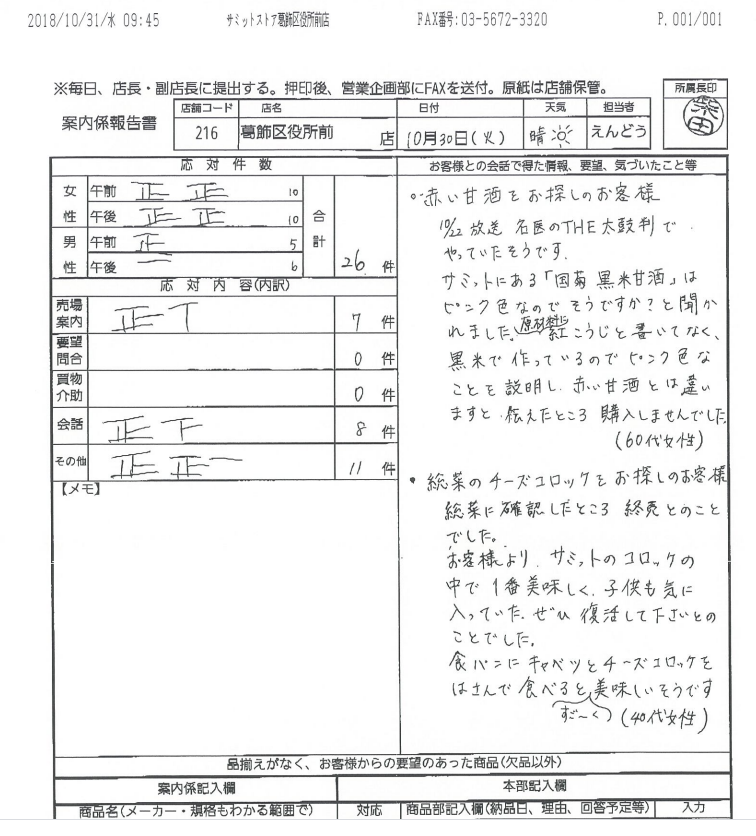 2018/10/31/水 09:45 サミットストア葛飾区役所前店 FAX番号:03-5672-3320 P.001/001
※毎日、店長・副店長に提出する。押印後、営業企画部にFAXを送付。原紙は店舗保管。
所属長印
案内係報告書
店舗コード 店名 日付 天気 担当者
216 葛飾区役所前 店 10月30日(火) 晴 えんどう
応対件数
女性 午前 正 正 10
午後 正 正 10
男性 午前 正 5
午後 6
合計 26 件
応対内容(内訳)
売場案内 正 T 7 件
要望問合 0 件
買物介助 0 件
会話 正 下 8 件
その他 正 正 一 11 件
【メモ】
お客様との会話で得た情報、要望、気づいたこと等
◦赤い甘酒をお探しのお客様
10/22 放送 名医のTHE太鼓判で
やっていたそうです.
サミットにある「国菊 黒米甘酒」は
ピンク色なのでそうですか?と聞か
れました。原材料に紅こうじと書いてなく、
黒米で作っているのでピンク色な
ことを説明し、赤い甘酒とは違い
ますと、伝えたところ 購入しませんでした。
(60代女性)
• 総菜のチーズコロッケをお探しのお客様
総菜に確認したところ 終売とのこと
でした。
お客様より、サミットのコロッケの
中で 1番美味しく、子供も気に
入っていた。ぜひ 復活して下さいとの
ことでした。
食パンにキャベツとチーズコロッケを
はさんで食べると美味しいそうです
すご〜く (40代女性)
品揃えがなく、お客様からの要望のあった商品(欠品以外)
案内係記入欄 本部記入欄
商品名(メーカー・規格もわかる範囲で) 対応 商品部記入欄(納品日、理由、回答予定等) 入力